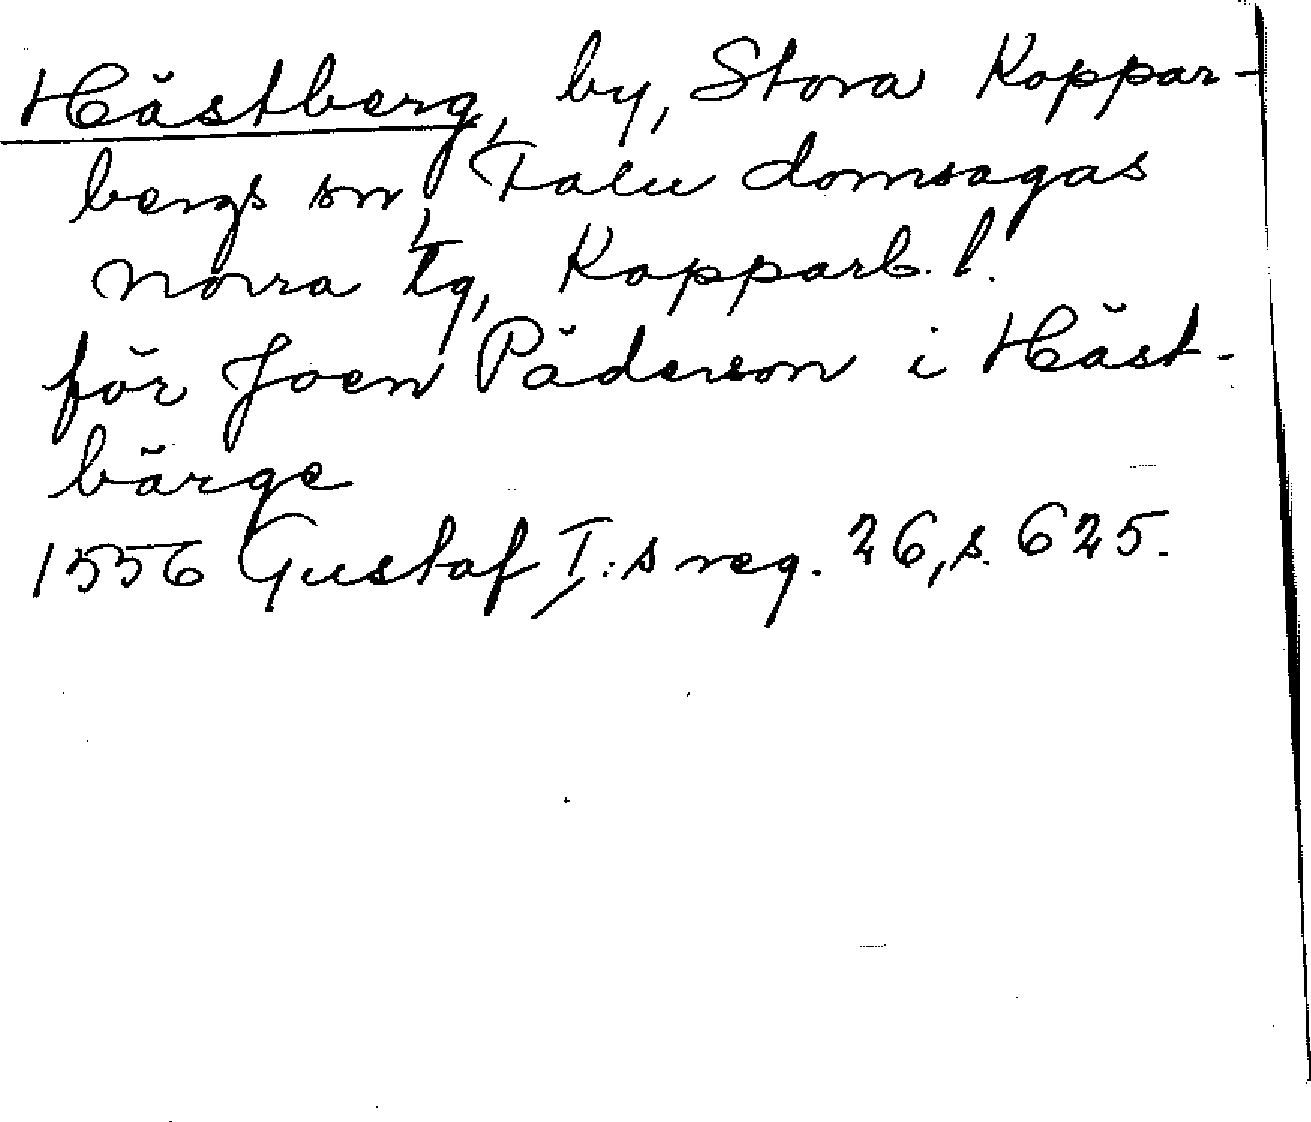 Hästberg, by, Stora Koppar-
bergs sn, Falu domsagas
norra tg, Kopparb. l.
för Joen Päderson i Häst-
bärge
1556 Gustaf I:s reg. 26, s. 625.